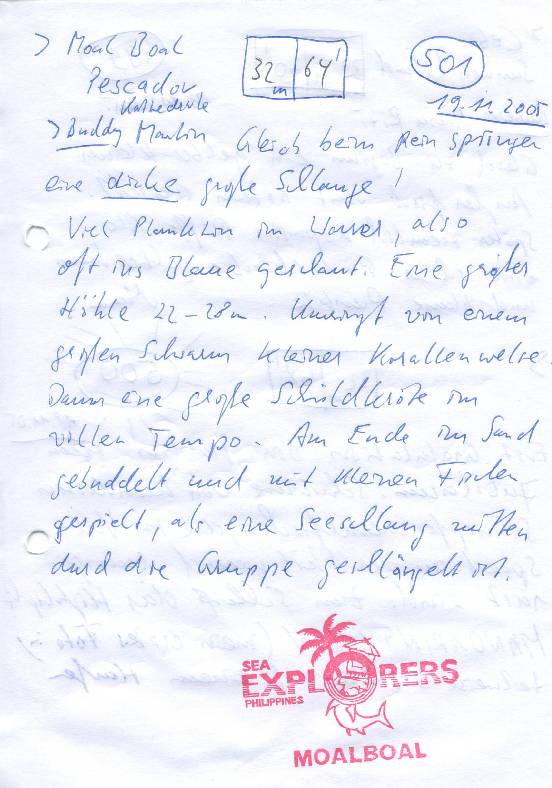 > Moal Boal
Pescador
Kathedrale
32 m 64'
501
19.11.2005
> Buddy Martin Gleich beim Rein springen
eine dicke große Schlange!
Viel Plankton im Wasser, also
oft ins Blaue geschaut. Eine große
Höhle 22-28m. Umringt von einem
großen Schwarm kleiner Korallenwelse.
Dann eine große Schildkröte im
vollen Tempo. Am Ende im Sand
gebuddelt und mit kleinen Fischen
gespielt, als eine Seeschlang mitten
durch die Gruppe geschlängelt ist.
SEA
EXPLORERS
PHILIPPINES
MOALBOAL